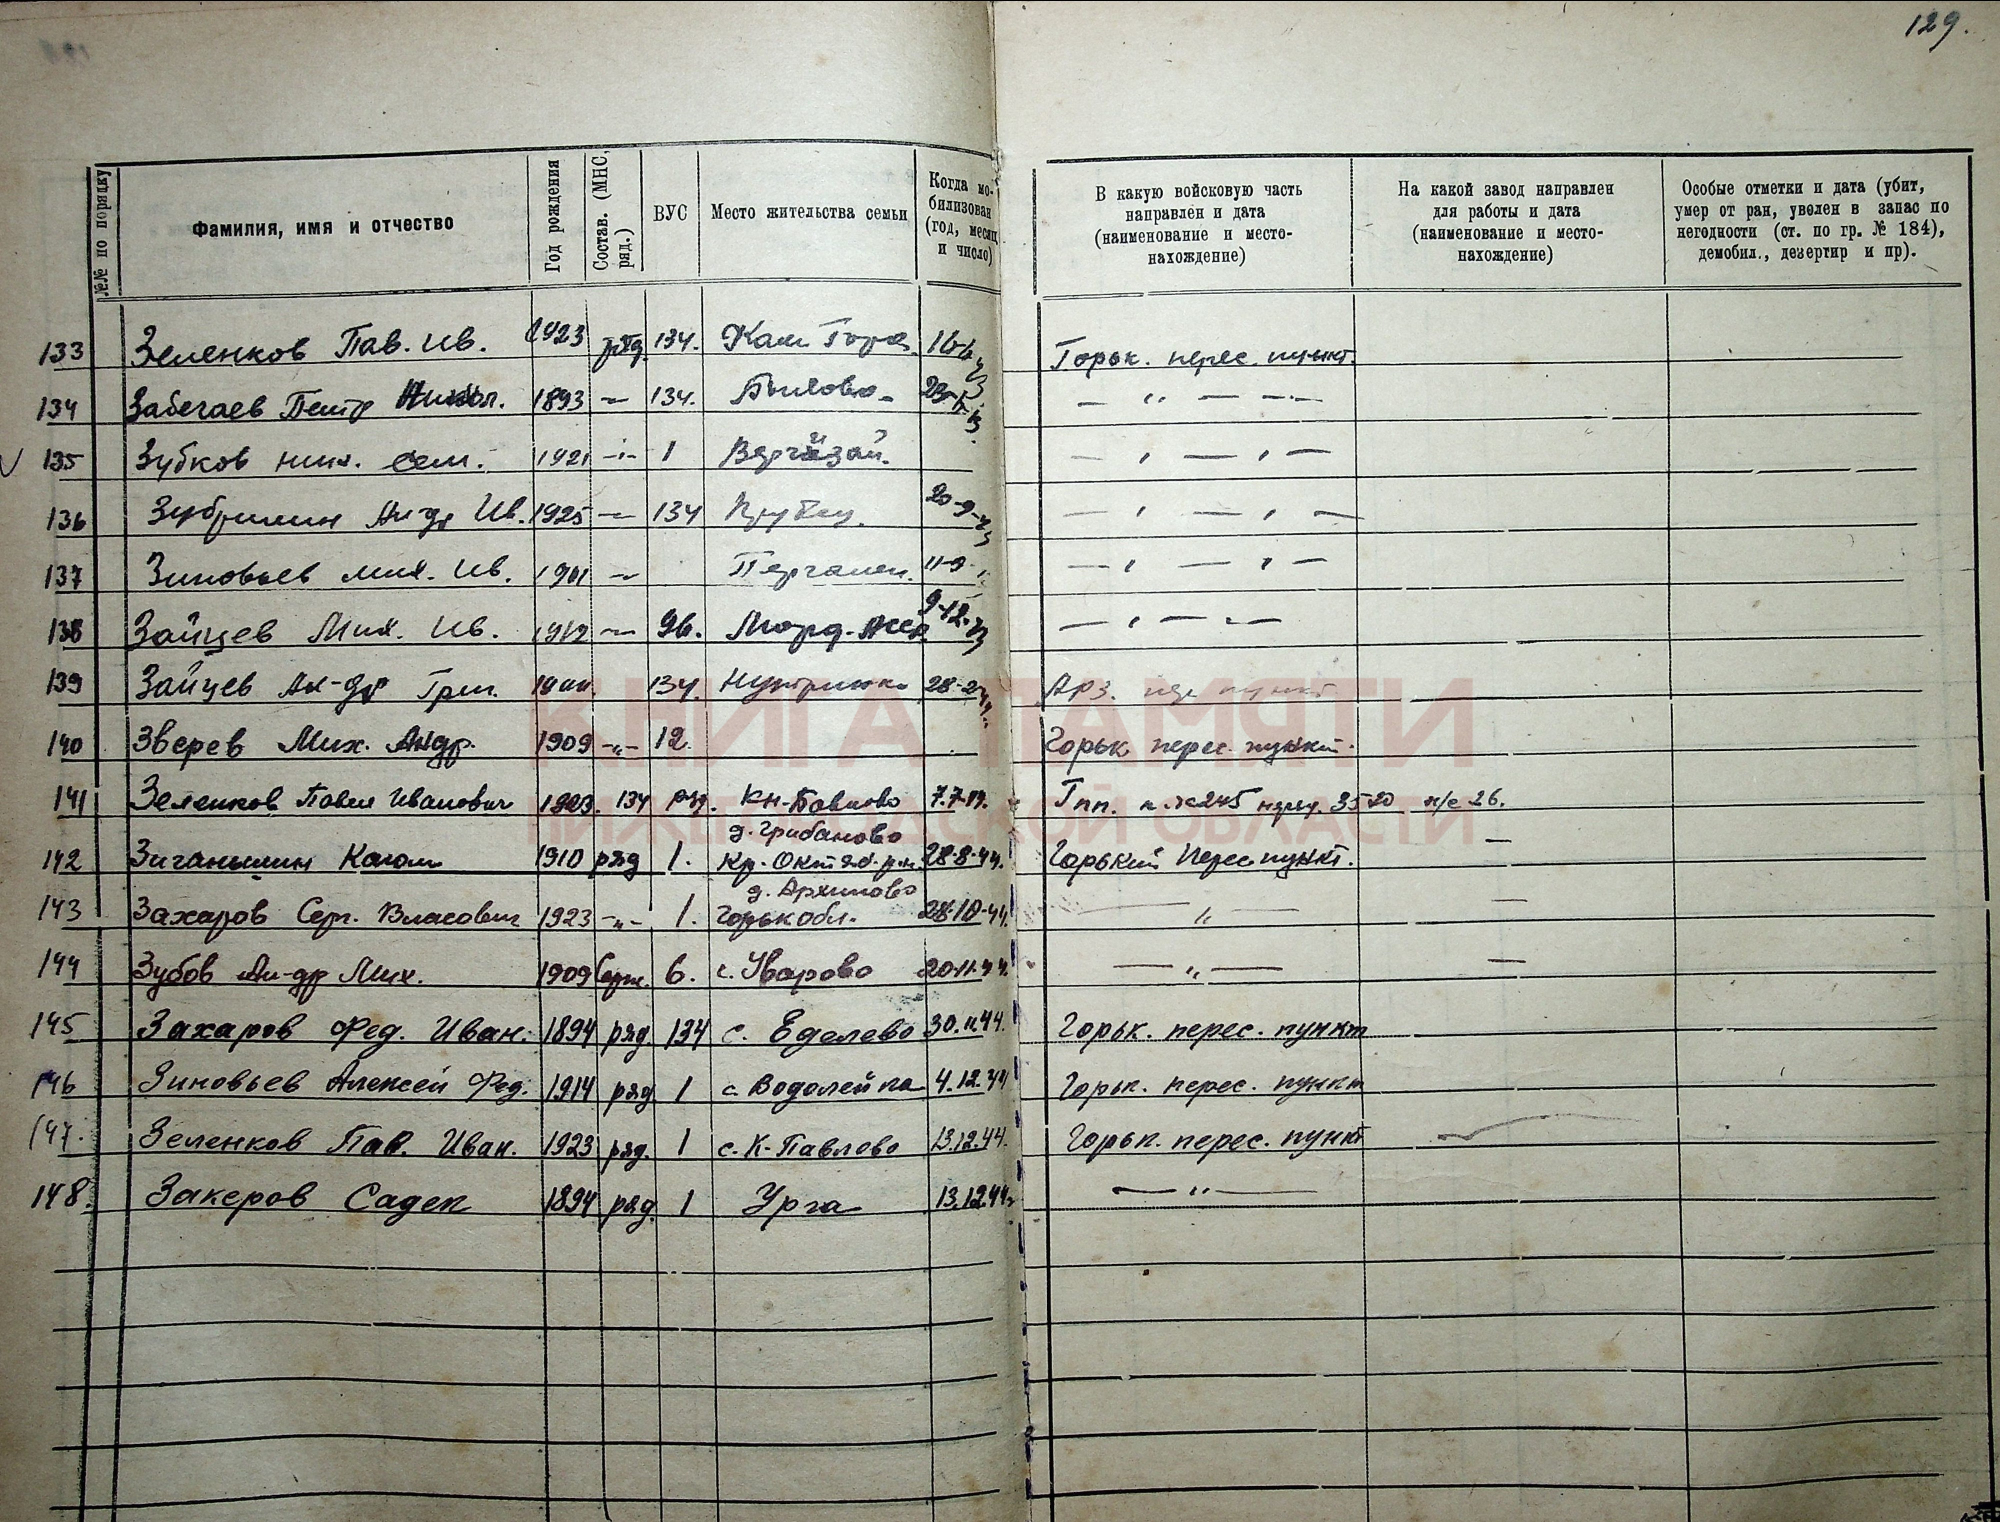 129.
№№ по порядку
Фамилия, имя и отчество
Год рождения
Состав. (МНС, ряд.)
ВУС
Место жительства семьи
Когда мобилизован (год, месяц и число)
В какую войсковую часть
направлен и дата
(наименование и место-
нахождение)
На какой завод направлен
для работы и дата
(наименование и место-
нахождение)
Особые отметки и дата (убит,
умер от ран, уволен в запас по
негодности (ст. по гр. № 184),
демобил., дезертир и пр).
133 Зеленков Пав. Ив. 1923 ряд. 134. Кам Горьк. перес. пункт.
134 Петр 1893 — 134. — " — " —
V 135 Зубков мих. Сем. 1921 —"— 1 — " — " —
136 Ив. 1925 — 134 20-9-43 — " — " —
137 Зиновьев мих. Ив. — 11-9 — " — " —
138 Зайцев Мих. Ив. 1912 — 96. Морд. 9-12-43 — " — " —
139 Зайцев Ал-др Григ. 134. 28-2-44. Арз. пункт
140 Зверев Мих. Андр. 1909 —"— 12. Горьк перес. пункт.
141 Зеленков Павел Иванович 1923. 134 ряд. Кн-Павлово Гпп. 26.
142 Зиганьшин 1910 ряд 1. д. Грибаново Кр. Октяб. р-н. 28-8-44. Горький Перес пункт. —
143 Захаров Серг. Власович 1923 —"— 1. д. Архипово Горьк обл. 28-10-44. — " — —
144 Зубов Ал-др Мих. 1909 Серж. 6. с. Уварово 20.11.44. — " — —
145 Захаров Фед. Иван. 1894 ряд. 134 с. Еделево 30.11.44. Горьк. перес. пункт
146 Зиновьев Алексей Фед. 1914 ряд 1 с. Водолейка 4.12.44 Горьк. перес. пункт
147. Зеленков Пав. Иван. 1923 ряд. 1 с. К-Павлово 13.12.44. Горьк. перес. пункт
148. Закеров Садек 1894 ряд. 1 Урга 13.12.44г — " —
КНИГА ПАМЯТИ
НИЖЕГОРОДСКОЙ ОБЛАСТИ